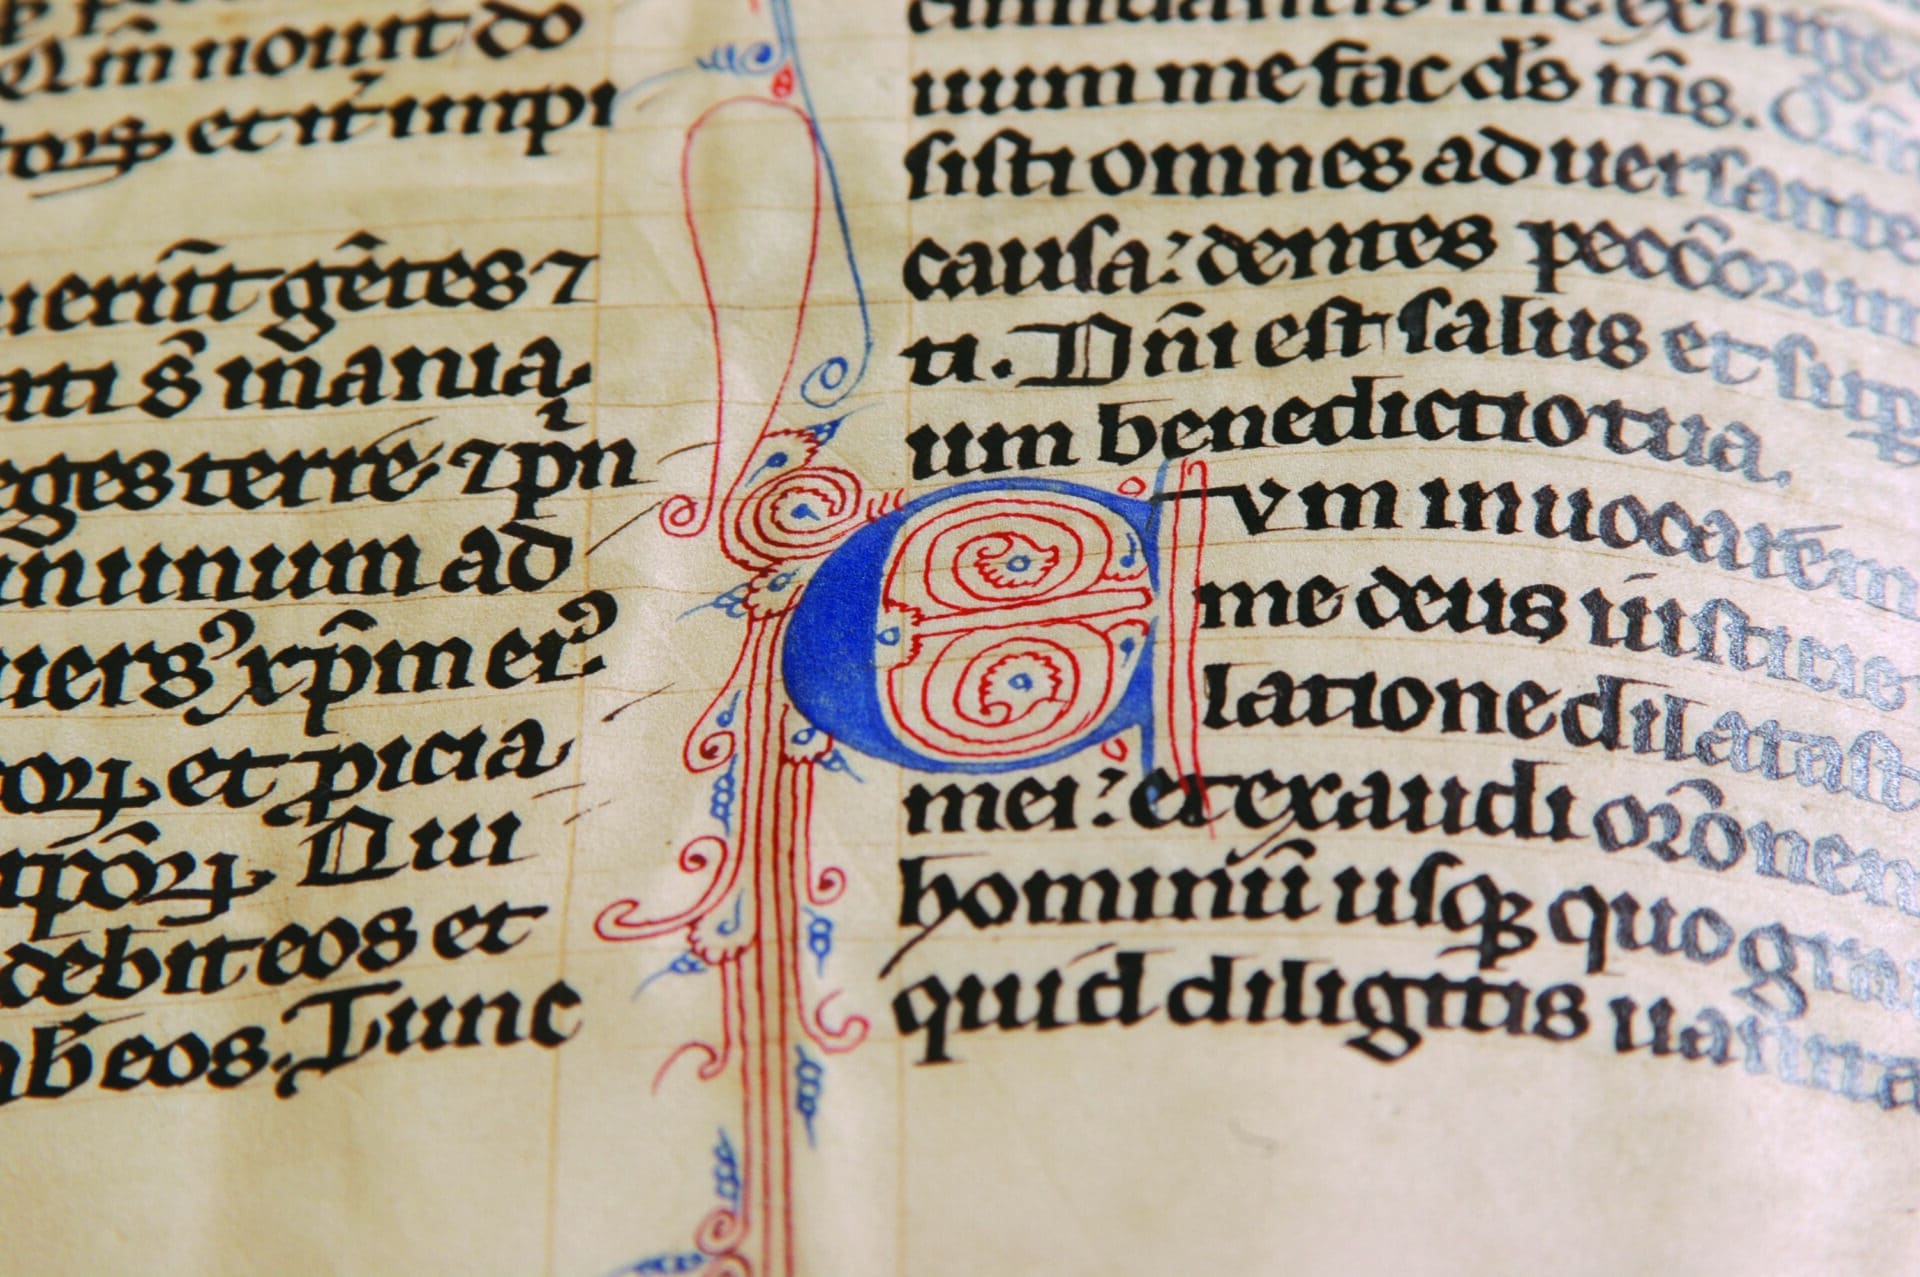 Qm̄ nouit do
et it̉ impi
uerūt gētes ⁊
ati s̄ īnania.
eges terre ⁊ p̉n
in unum ad
uersꝰ xp̄m eiꝰ
torꝝ et picia
ip̄oꝝ. Qui
debit eos et
ab̄ eos. Tunc
uum me fac ds̄ ms̄.
sisti omnes aduersante
causa: dentes peccōrum
ti. Dn̄i est salus et sup
um benedictio tua.
Cvm inuocarem
me deus iusticie
latione dilatast
mei: et exaudi orōnem
hominū usqꝫ quo gra
quid diligitis uanita